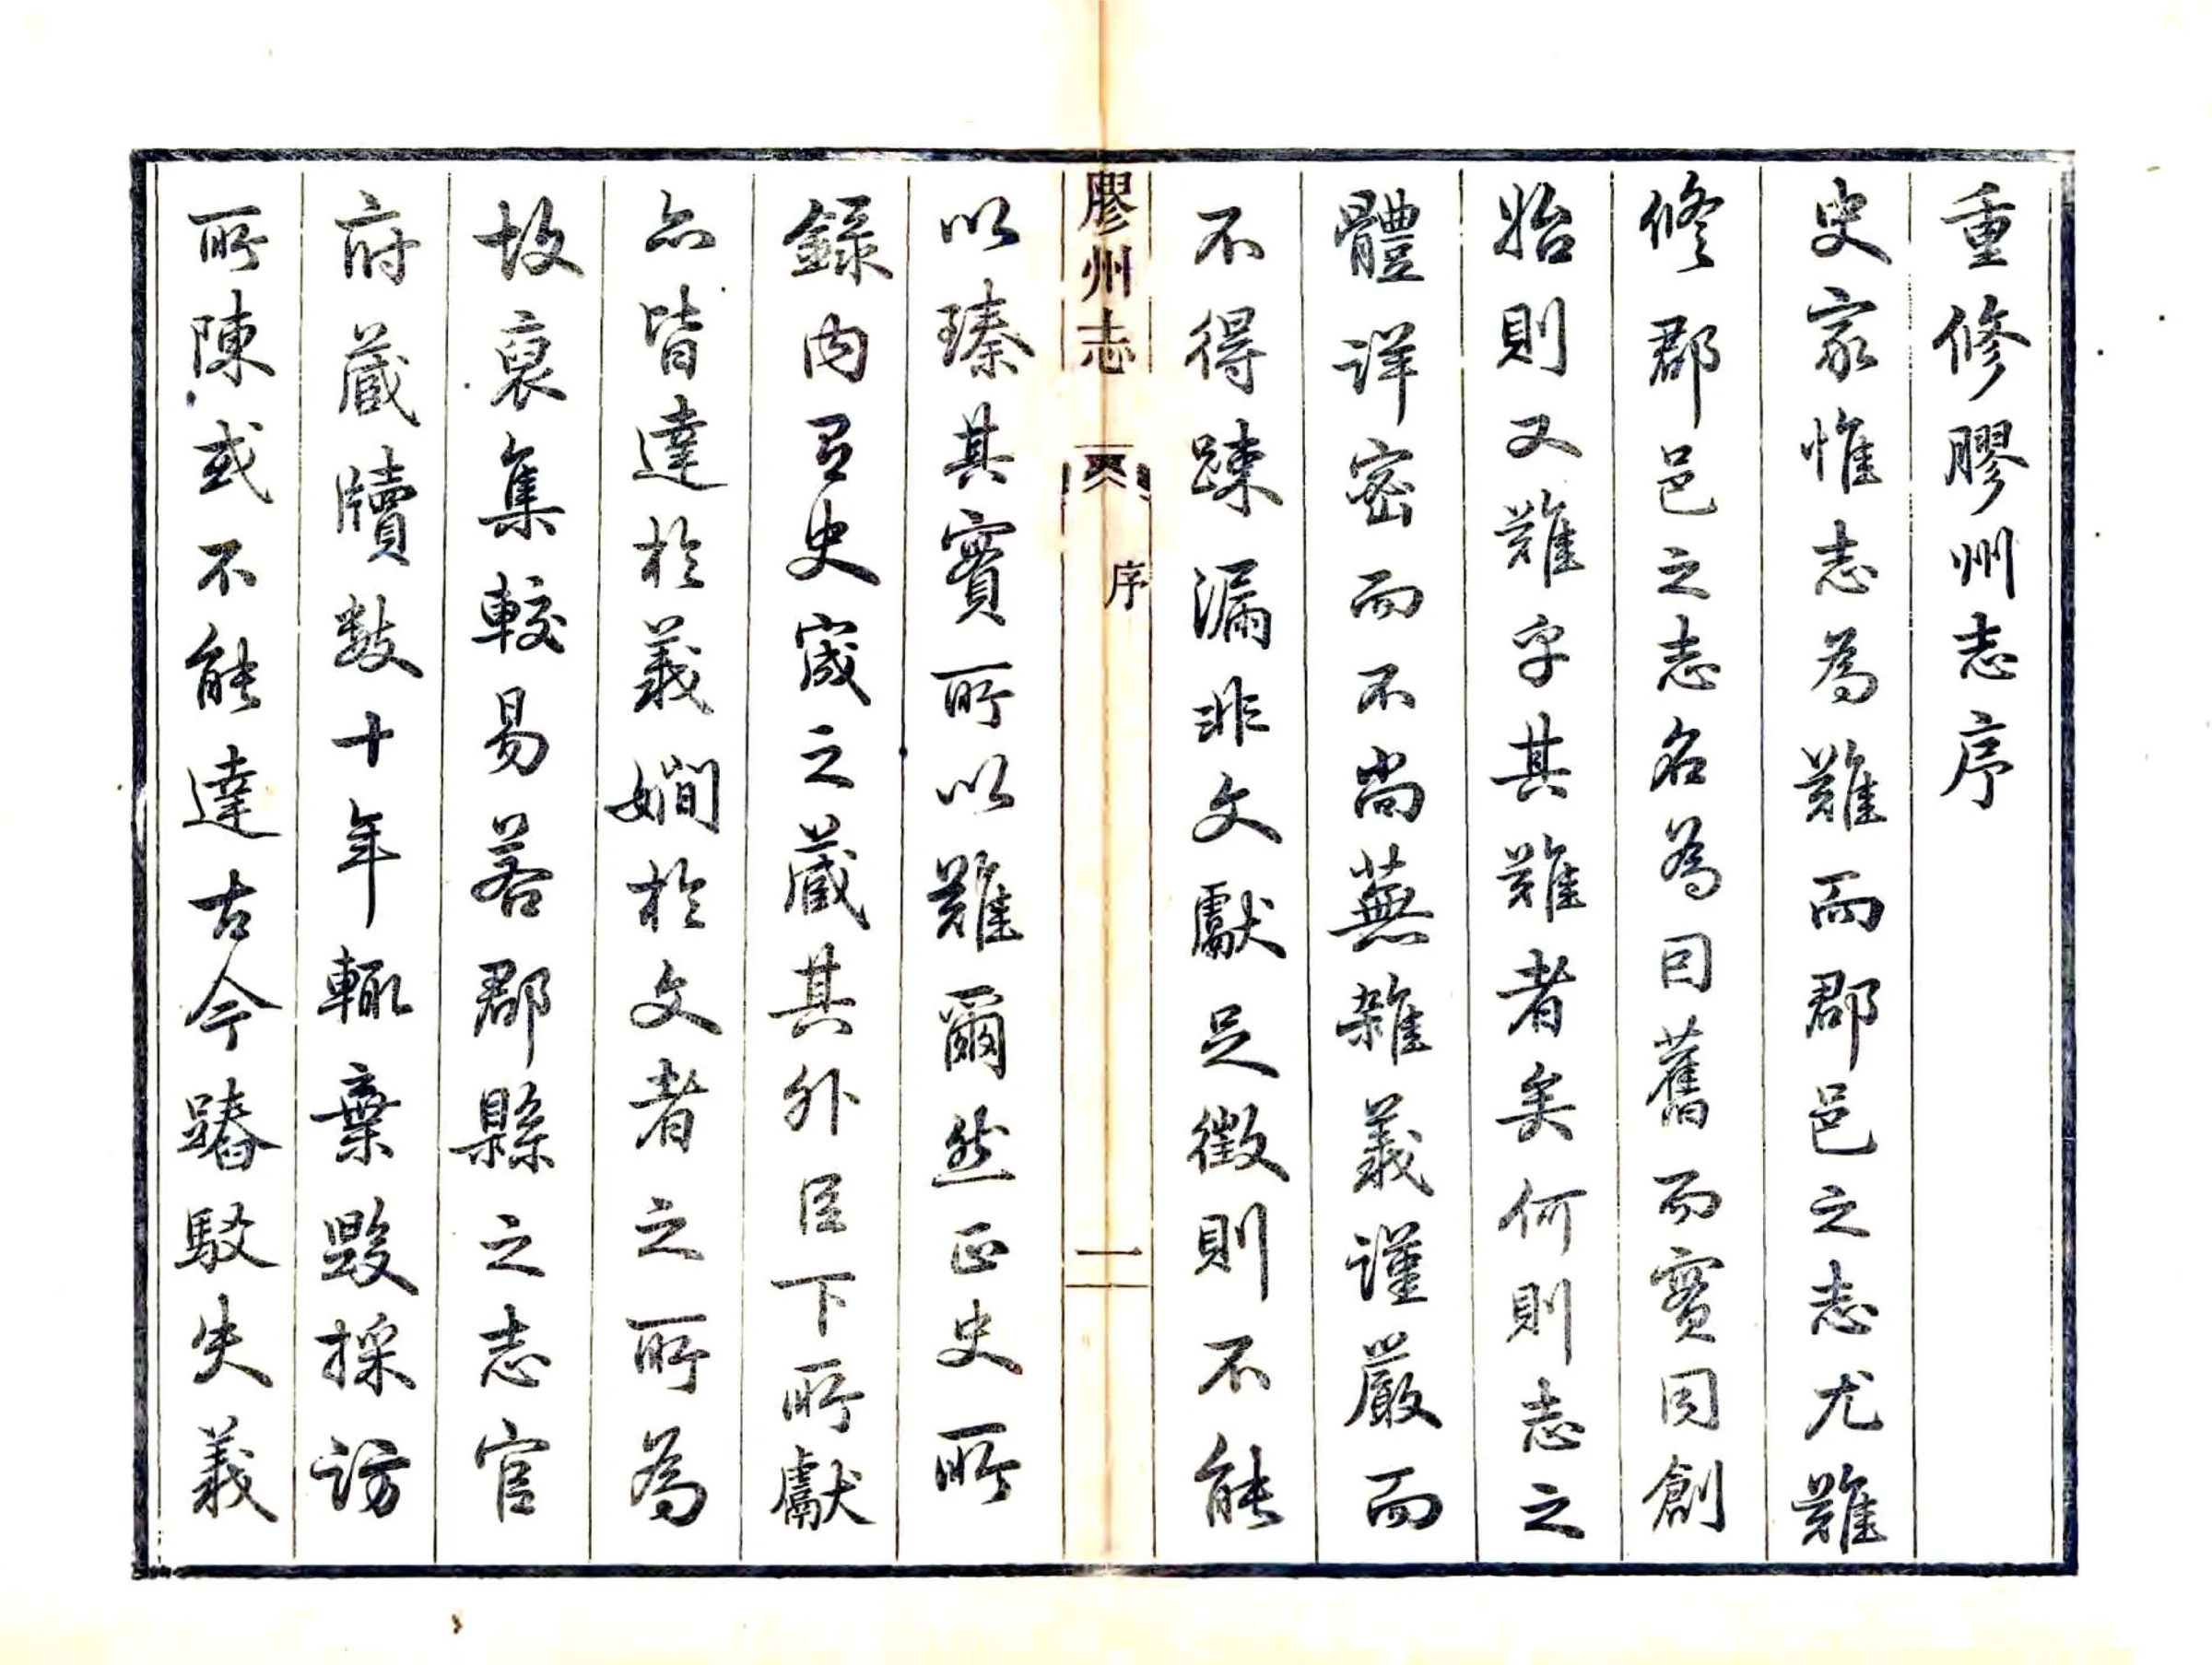 重修膠州志序
史家惟志為難而郡邑之志尤難
修郡邑之志名為因舊而實同創
始則又難乎其難者矣何則志之
體詳密而不尚蕪雜義謹嚴而
不得疎漏非文獻足徵則不能
膠州志 序 一
以臻其實所以難爾然正史所
錄內有史宬之藏其外臣下所獻
亦皆達於義嫺於文者之所為
故裒集較易若郡縣之志官
府藏牘數十年輒棄毀採訪
所陳或不能達古今踳駁失義